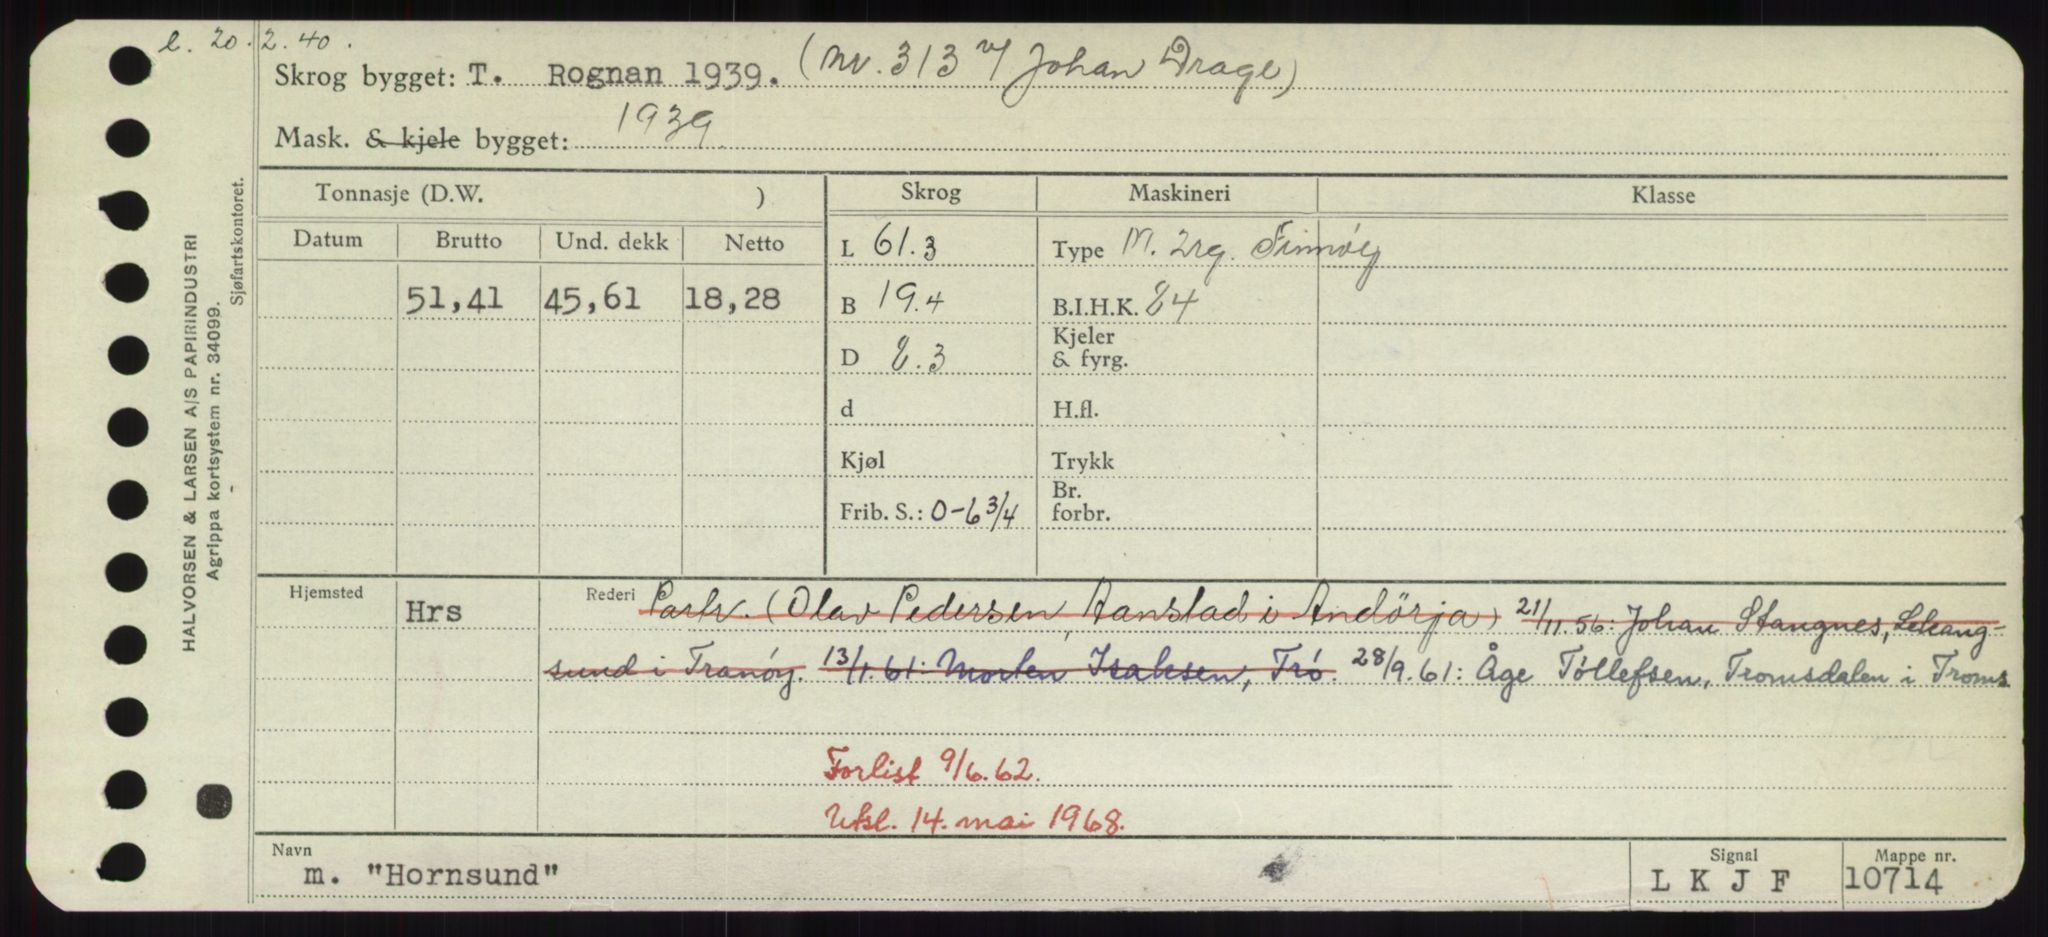 l. 20.2.40.
Skrog bygget: T. Rognan 1939. (nr. 313 v/ Johan Drage)
Mask. & kjele bygget: 1939
Tonnasje (D.W. ) Skrog Maskineri Klasse
Datum Brutto Und. dekk Netto
L 61.3 Type M. 2rg. Finnöy
51,41 45,61 18,28 B 19.4 B.I.H.K. 84
D 8.3 Kjeler & fyrg.
d H.fl.
Kjøl Trykk
Frib. S.: 0-6 3/4 Br. forbr.
Hjemsted Hrs Rederi Partr. (Olav Pedersen, Aanstad i Andörja) 21/11.56: Johan Stangnes, Leikang-
sund i Tranöy. 13/1.61: Morten Isaksen, Frö. 28/9.61: Åge Tollefsen, Tromsdalen i Troms
Forlist 9/6.62.
Utsl. 14. mai 1968.
Navn Signal Mappe nr.
m. "Hornsund" L K J F 10714
HALVORSEN & LARSEN A/S PAPIRINDUSTRI
Agrippa kortsystem nr. 34099.
Sjøfartskontoret.